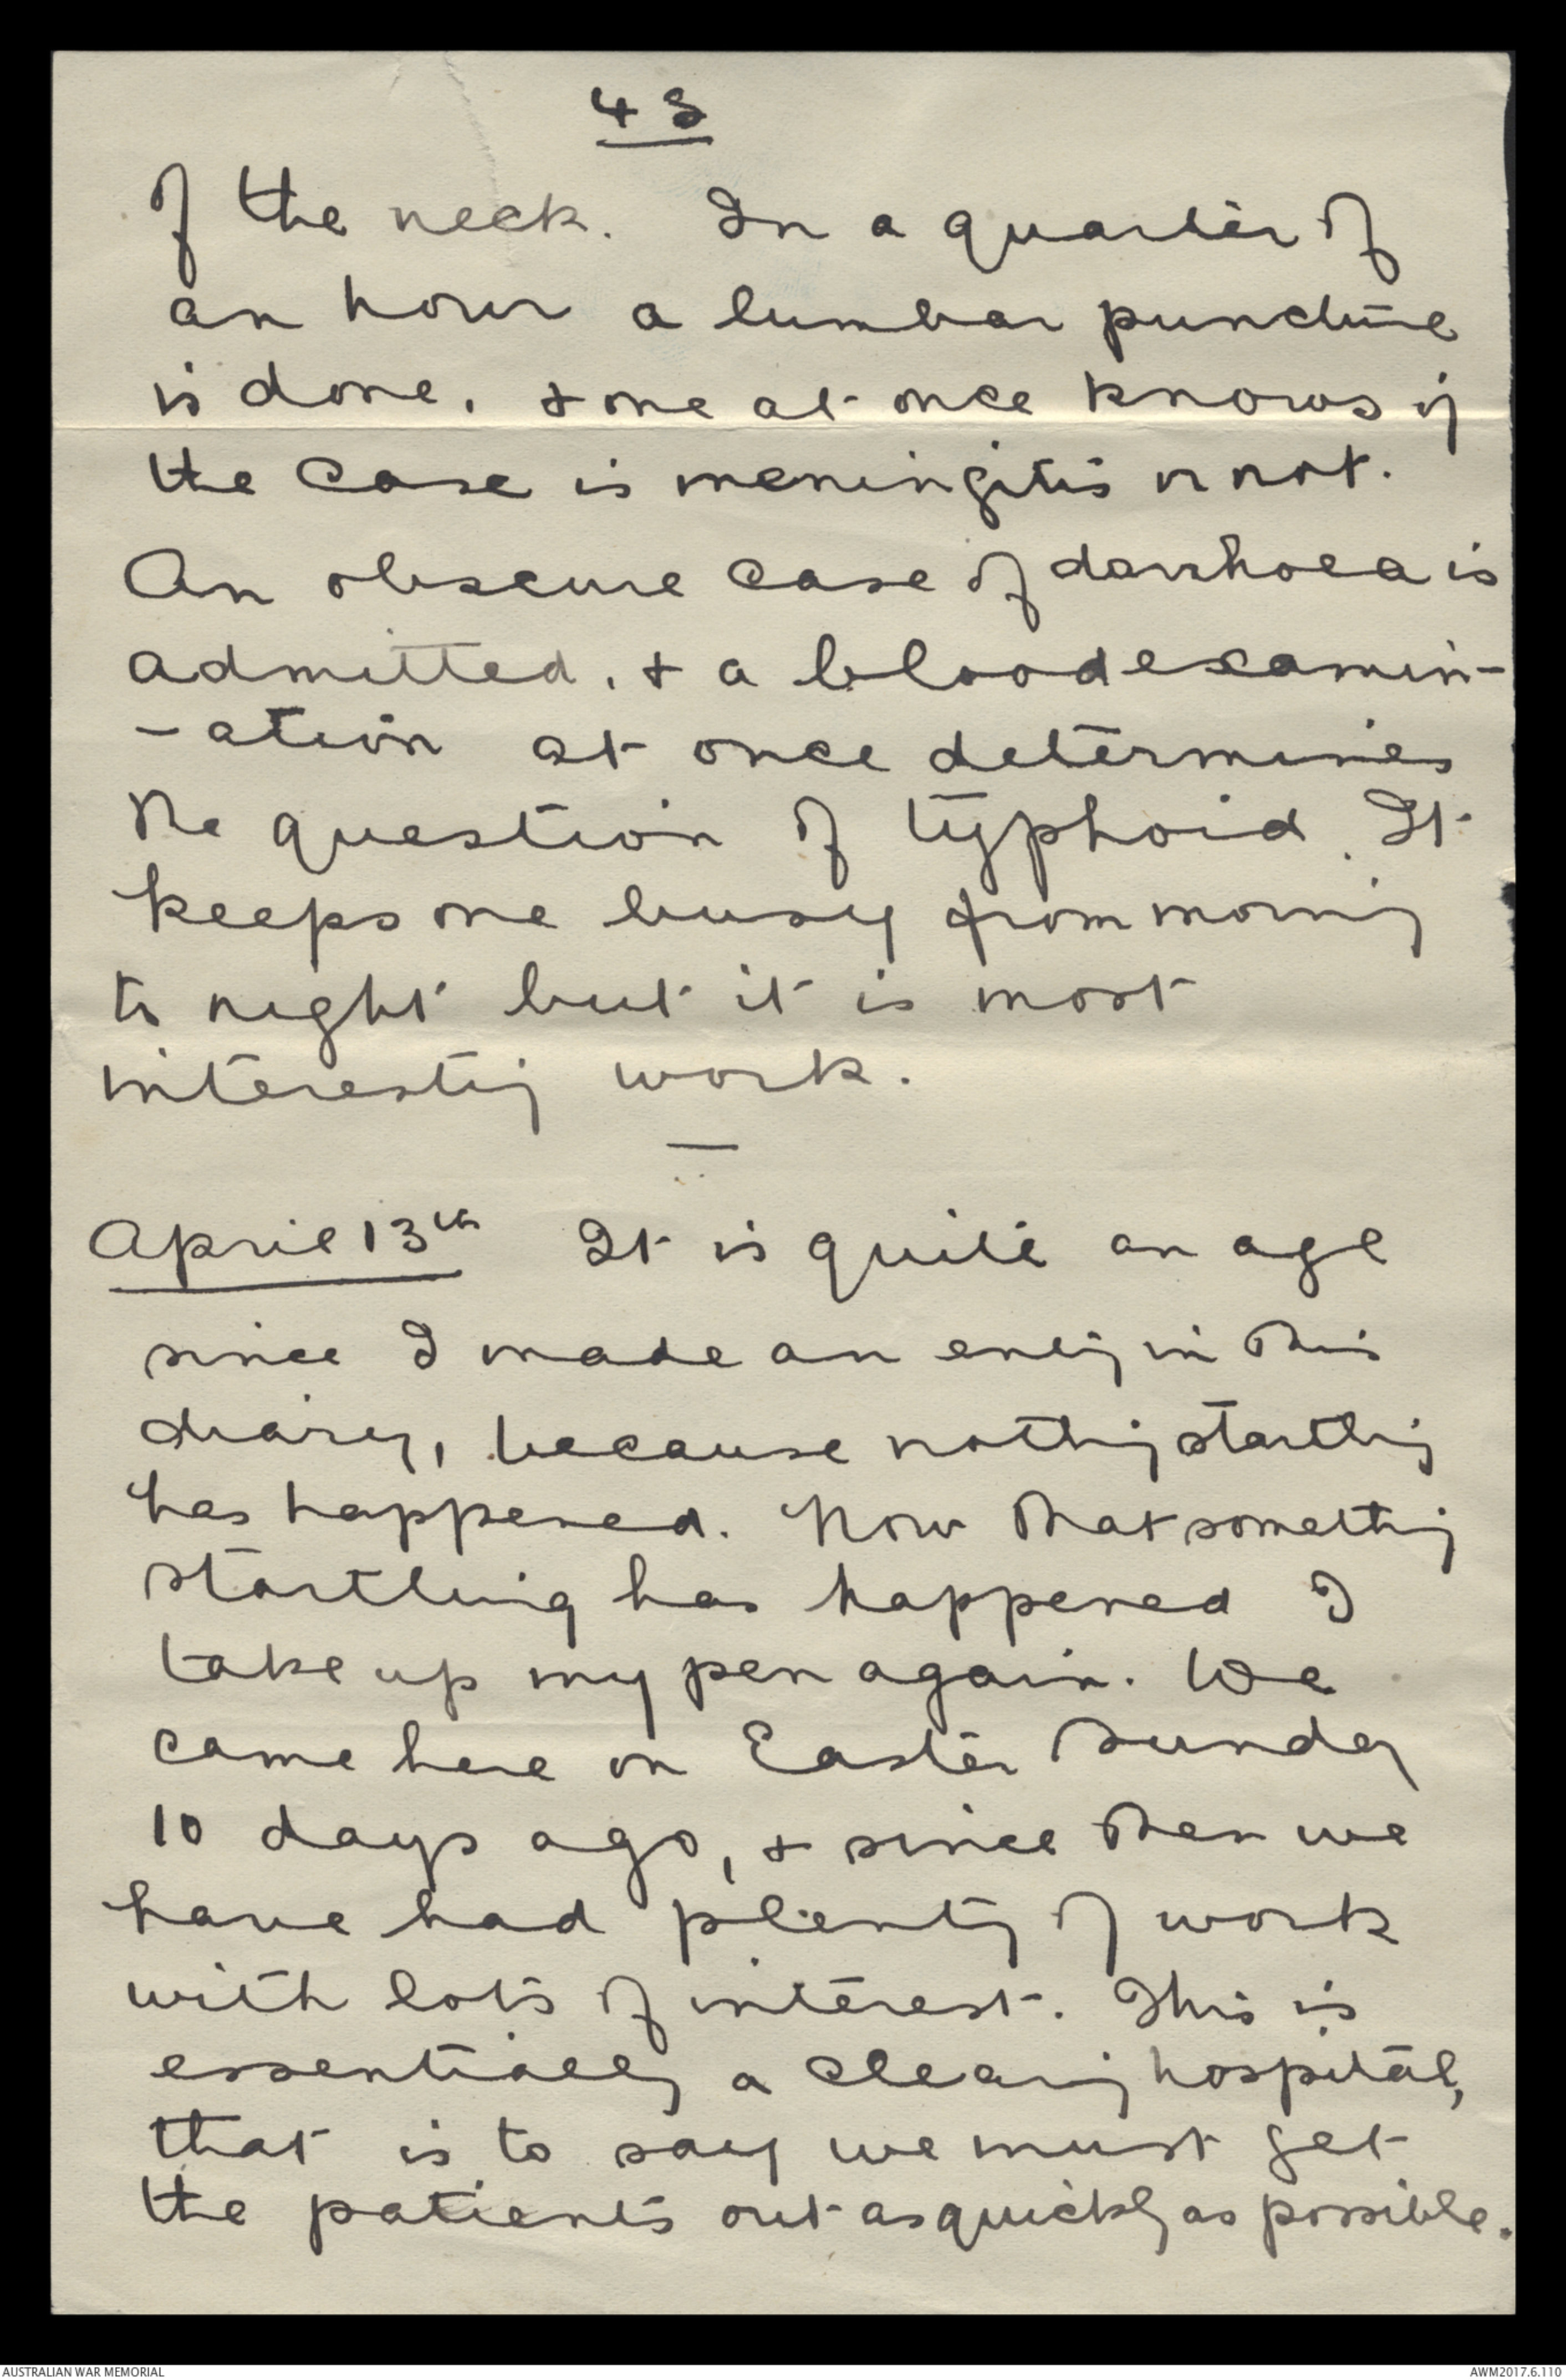 43
of the neck. In a quarter of
an hour a lumbar puncture
is done, & one at once knows if
the case is meningitis or not.
An obscure case of diarrhoea is
admitted, & a blood examin-
-ation at once determines
the question of typhoid. It
keeps one busy from morning
to night but it is most
interesting work.
—
April 13th It is quite an age
since I made an entry in this
diary, because nothing startling
has happened. Now that something
startling has happened I
take up my pen again. We
came here on Easter Sunday
10 days ago, & since then we
have had plenty of work
with lots of interest. This is
essentially a clearing hospital,
that is to say we must get
the patients out as quickly as possible.
AUSTRALIAN WAR MEMORIAL
AWM2017.6.110